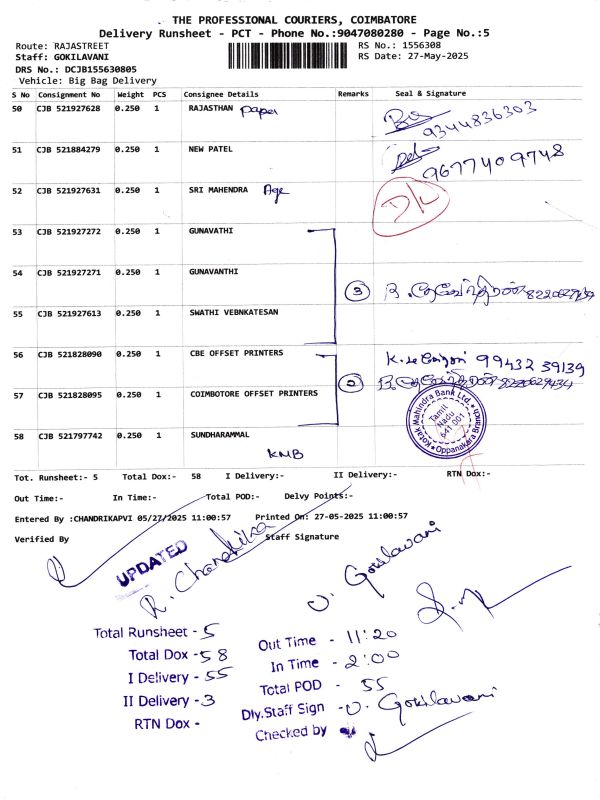 THE PROFESSIONAL COURIERS, COIMBATORE
Delivery Runsheet - PCT - Phone No.:9047080280 - Page No.:5
Route: RAJASTREET
RS No.: 1556308
Staff: GOKILAVANI
RS Date: 27-May-2025
DRS No.: DCJB155630805
Vehicle: Big Bag Delivery
S No Consignment No Weight PCS Consignee Details Remarks Seal & Signature
50 CJB 521927628 0.250 1 RAJASTHAN Paper
9344836303
51 CJB 521884279 0.250 1 NEW PATEL
9677409748
52 CJB 521927631 0.250 1 SRI MAHENDRA Age D/L
53 CJB 521927272 0.250 1 GUNAVATHI
54 CJB 521927271 0.250 1 GUNAVANTHI
3
55 CJB 521927613 0.250 1 SWATHI VEBNKATESAN
56 CJB 521828090 0.250 1 CBE OFFSET PRINTERS
99432 39139
2
57 CJB 521828095 0.250 1 COIMBOTORE OFFSET PRINTERS
Kotak Mahindra Bank Ltd.
Tamil
Nadu
641 001
Oppanakara Branch
58 CJB 521797742 0.250 1 SUNDHARAMMAL
KMB
Tot. Runsheet:- 5 Total Dox:- 58 I Delivery:- II Delivery:- RTN Dox:-
Out Time:- In Time:- Total POD:- Delvy Points:-
Entered By :CHANDRIKAPVI 05/27/2025 11:00:57 Printed On: 27-05-2025 11:00:57
Verified By Staff Signature
UPDATED
R. Chandrika
O. Gokilavani
Total Runsheet - 5
Total Dox - 58
I Delivery - 55
II Delivery - 3
RTN Dox -
Out Time - 11:20
In Time - 2:00
Total POD - 55
Dly.Staff Sign - O. Gokilavani
Checked by